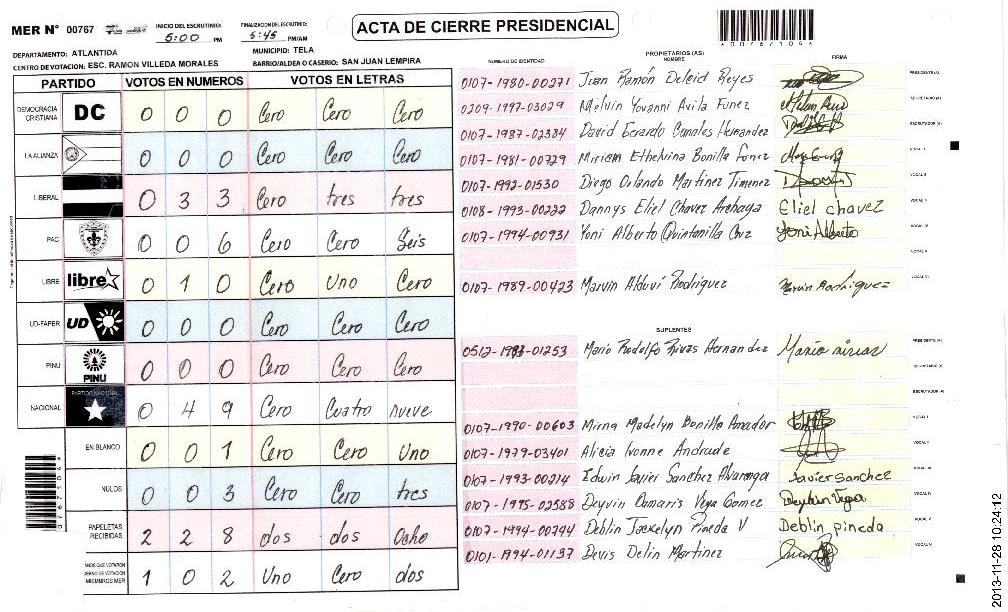 MER Nº 00767
INICIO DEL ESCRUTINIO: 5:00 PM
FINALIZACION DEL ESCRUTINIO: 5:45 PM/AM
ACTA DE CIERRE PRESIDENCIAL
DEPARTAMENTO: ATLANTIDA
MUNICIPIO: TELA
CENTRO DE VOTACION: ESC. RAMON VILLEDA MORALES
BARRIO/ALDEA O CASERIO: SAN JUAN LEMPIRA
PARTIDO VOTOS EN NUMEROS VOTOS EN LETRAS
DEMOCRACIA CRISTIANA DC 0 0 0 Cero Cero Cero
LA ALIANZA 0 0 0 Cero Cero Cero
LIBERAL 0 3 3 Cero tres tres
PAC 0 0 6 Cero Cero Seis
LIBRE libre 0 1 0 Cero Uno Cero
UD-FAPER UD 0 0 0 Cero Cero Cero
PINU PINU 0 0 0 Cero Cero Cero
NACIONAL PARTIDO NACIONAL 0 4 9 Cero Cuatro nueve
EN BLANCO 0 0 1 Cero Cero Uno
NULOS 0 0 3 Cero Cero tres
PAPELETAS RECIBIDAS 2 2 8 dos dos Ocho
MIEMBROS MER 1 0 2 Uno Cero dos
PROPIETARIOS (AS)
NUMERO DE IDENTIDAD NOMBRE FIRMA
0107-1980-00271 Juan Ramón Deleid Reyes PRESIDENTE (A)
0209-1997-03029 Melvin Yovanni Avila Funez SECRETARIO (A)
0107-1987-02384 David Gerardo Canales Hernandez ESCRUTADOR (A)
0107-1981-00729 Miriam Ethelvina Bonilla Funez VOCAL I
0107-1992-01530 Diego Orlando Martinez Jimenez VOCAL II
0108-1993-00222 Dannys Eliel Chavez Archaga Eliel chavez
0107-1994-00931 Yoni Alberto Quintanilla Cruz Yoni Alberto
VOCAL V
0107-1989-00423 Marvin Alduvi Rodriguez Marvin Rodriguez VOCAL VI
SUPLENTES
0512-1983-01253 Mario Rodolfo Rivas Hernandez Mario rivas PRESIDENTE (A)
SECRETARIO (A)
ESCRUTADOR (A)
0107-1990-00603 Mirna Madelyn Bonilla Amador VOCAL I
0107-1979-03401 Alicia Ivonne Andrade VOCAL II
0107-1993-00214 Edwin Javier Sanchez Alvarenga Javier Sanchez VOCAL III
0107-1995-02588 Deyvin Damaris Vega Gomez Deyvin Vega VOCAL IV
0107-1994-00744 Deblin Jackelyn Pineda V Deblin pineda VOCAL V
0101-1994-01137 Devis Delin Martinez VOCAL VI
2013-11-28 10:24:12